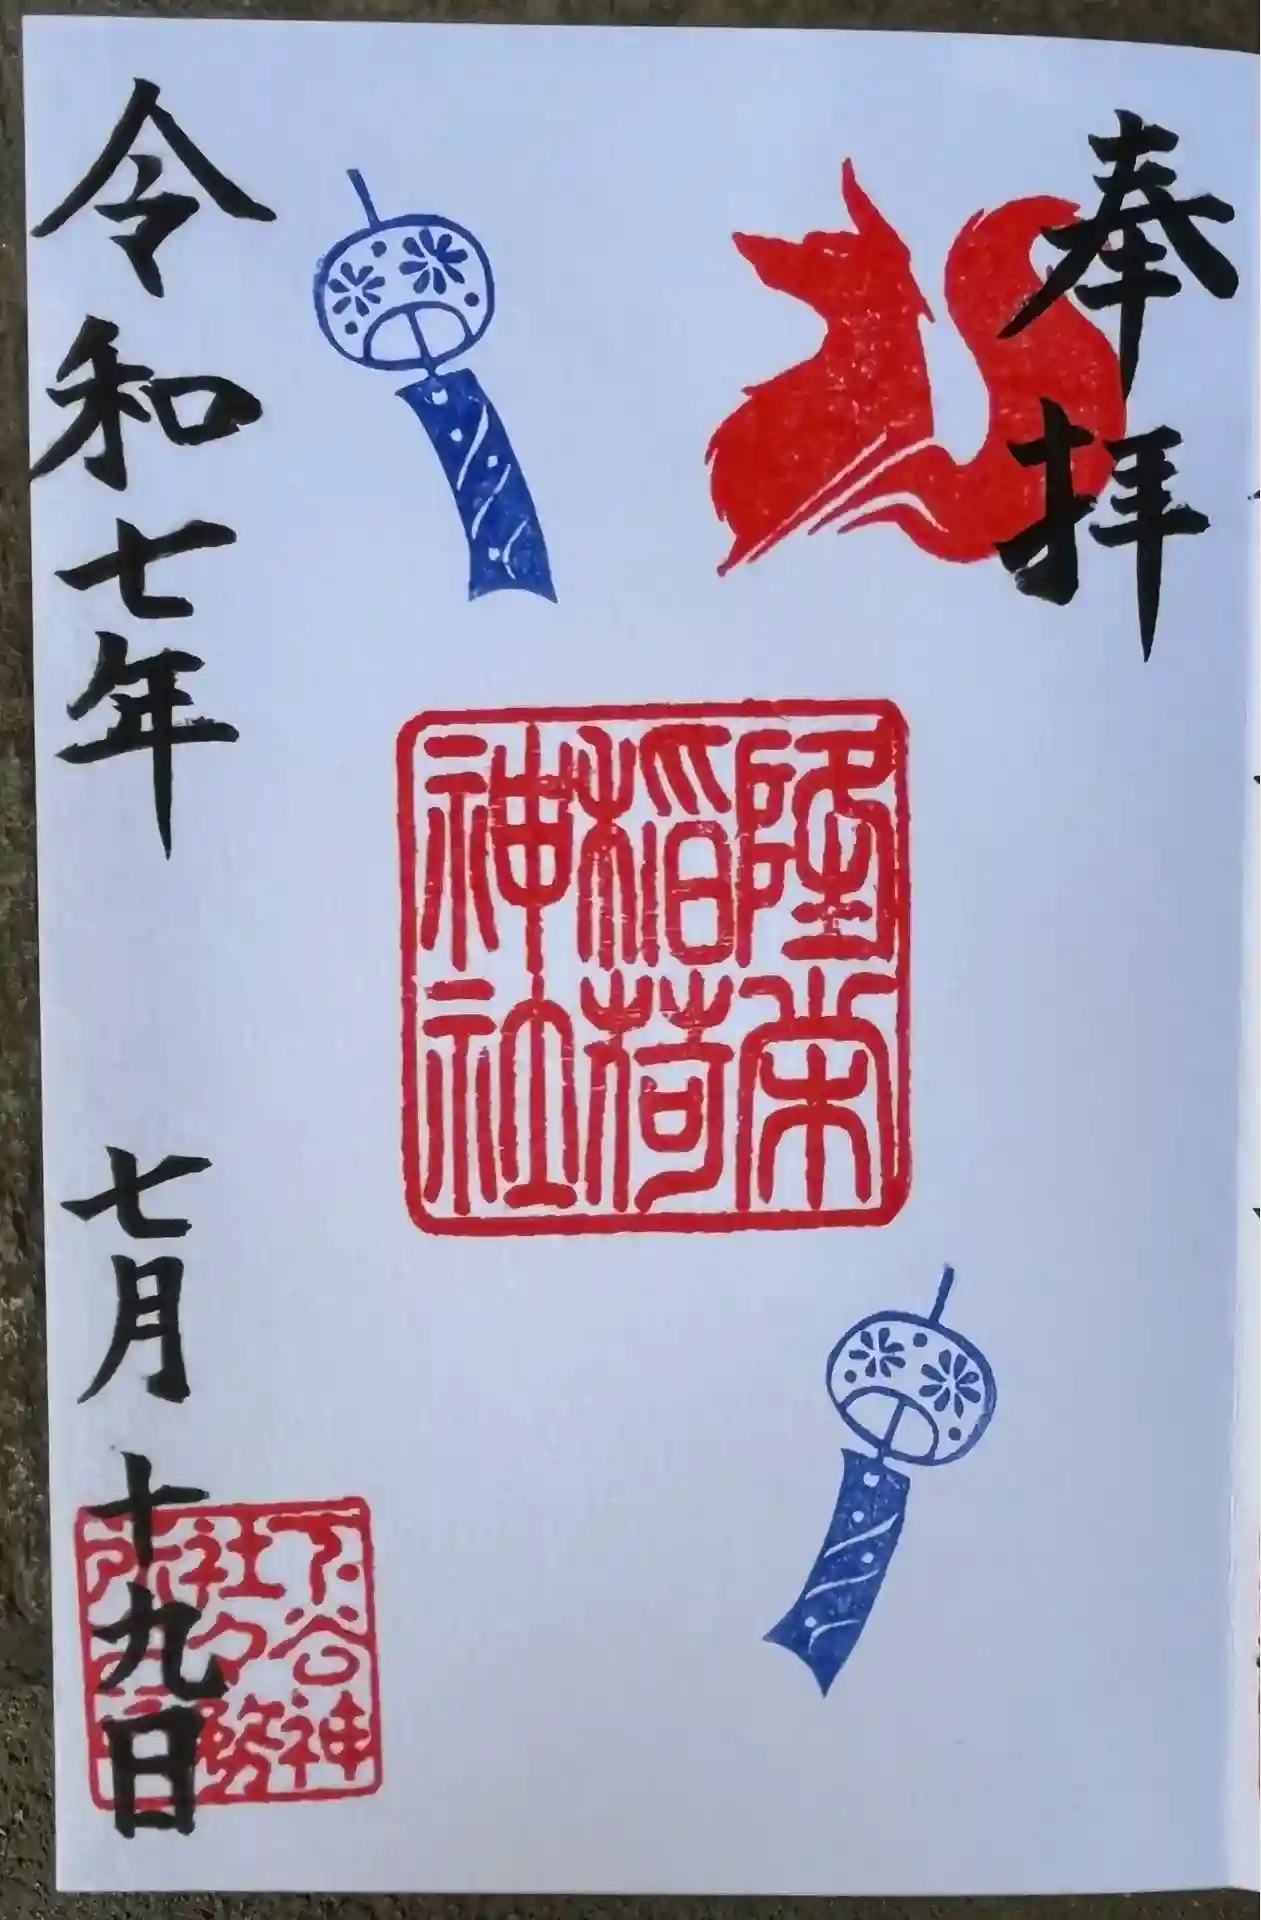 奉拝
隆栄
稲荷
神社
令和七年 七月十九日
下谷神
社々務
所